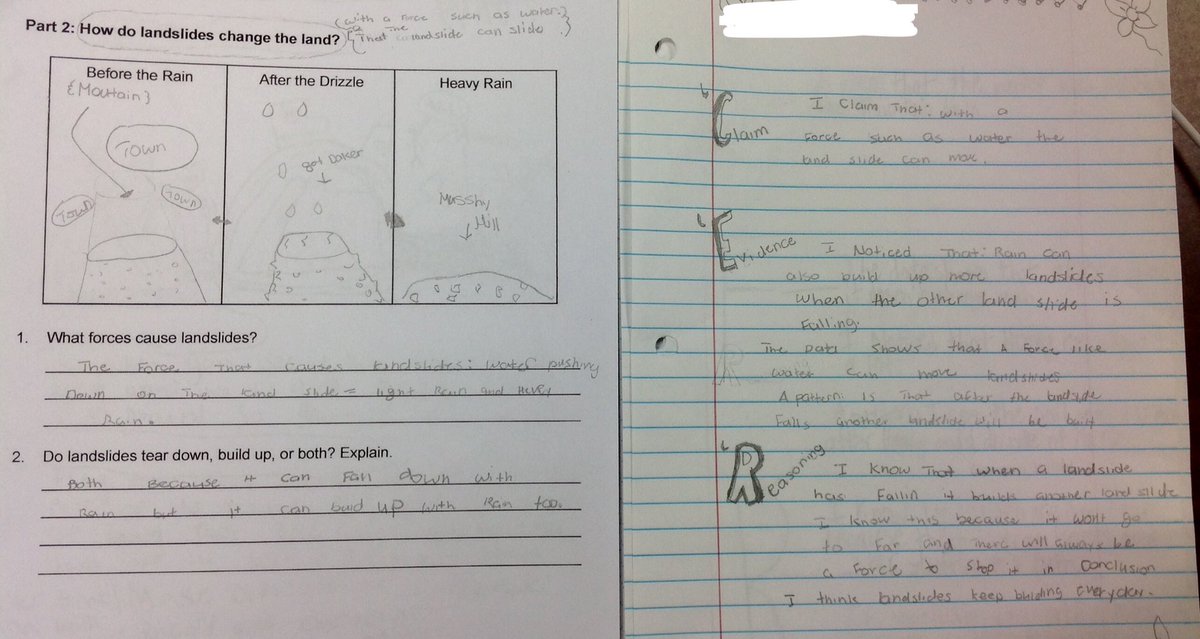 Part 2: How do landslides change the land?
(with a Force such as water.)
That The landslide can slide
Before the Rain
{Mountain}
Town
Town
Town
After the Drizzle
got Darker
Heavy Rain
Musshy
Hill
1. What forces cause landslides?
The Force That causes landslides: water pushing
Down on The land slide = light Rain and Hevey
Rain.
2. Do landslides tear down, build up, or both? Explain.
Both Because it can Fall down with
Rain but it can buid up with Rain too.
Claim
I Claim That: with a
Force such as water the
land slide can move.
Evidence
I Noticed That: Rain can
also build up more landslides
when the other land slide is
Falling.
The data shows that A Force like
water can move landslides
A pattern: is That after the landslide
Falls another landslide will be built
Reasoning
I know That when a landslide
has Fallin it builds another land slide
I know this because it won't go
to Far and There will always be
a Force to stop it in conclusion
I think landslides keep buiding everyday.